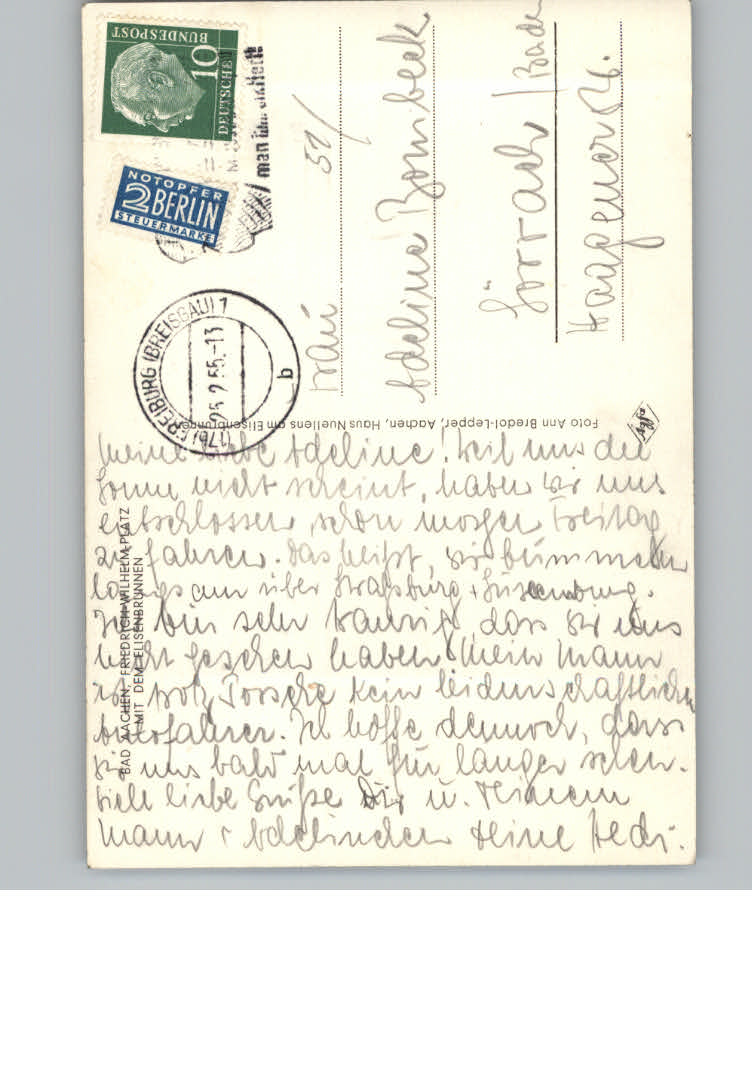 DEUTSCHE
BUNDESPOST
10
NOTOPFER
2 BERLIN
STEUERMARKE
man
(17b) FREIBURG (BREISGAU) 1
25.2.55.-13
b
Frau 51/
Adeline Bombeck
Lörrach / Baden
Haagenerstr.
Foto Ann Bredol-Lepper, Aachen, Haus Nuellens am Elisenbrunnen
Agfa
BAD AACHEN, FRIEDRICH-WILHELM-PLATZ
MIT DEM ELISENBRUNNEN
Meine liebe Adeline! Weil uns die
Sonne nicht scheint, haben wir uns
entschlossen, schon morgen Freitag
zu fahren. Das heißt, wir bummeln
langsam über Straßburg + Luxemburg.
Ich bin sehr traurig, dass wir uns
nicht gesehen haben. Mein Mann
ist trotz Porsche kein leidenschaftlicher
Autofahrer. Ich hoffe dennoch, dass
wir uns bald mal für länger sehen.
Viele liebe Grüße Dir u. Deinem
Mann + Adelinchen Deine Hedi.